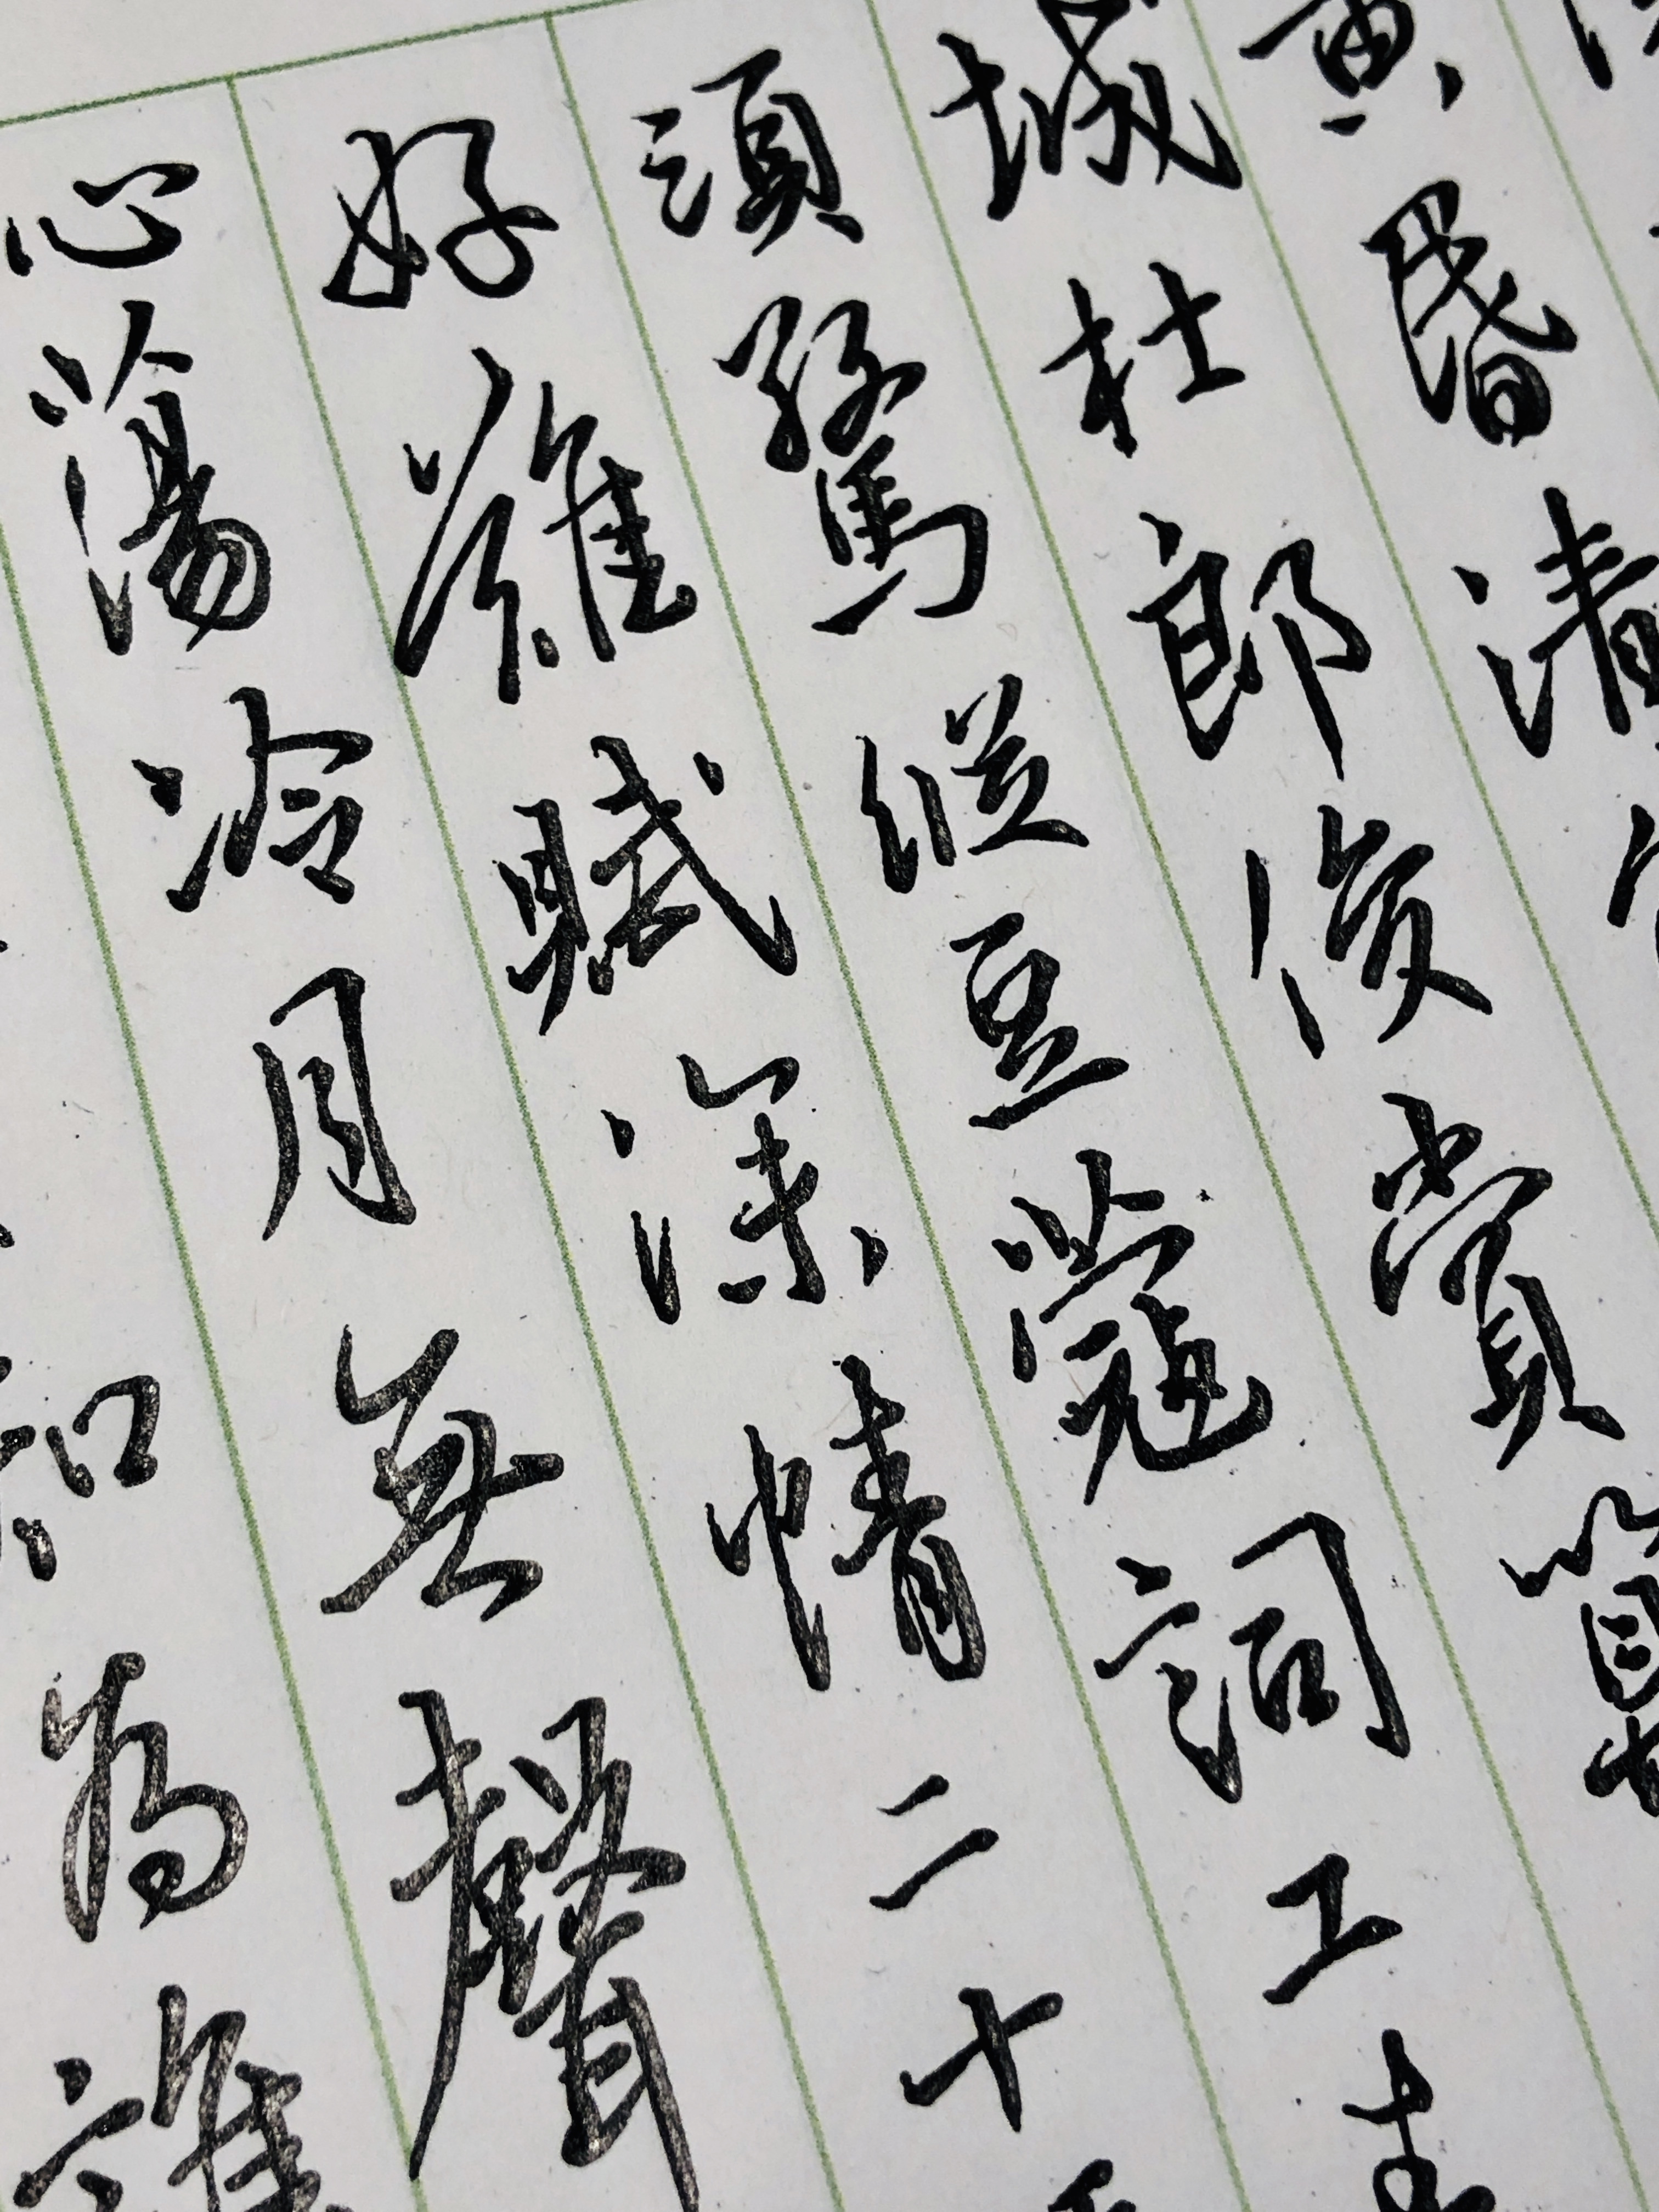 黃昏清
城杜郎俊賞算
須驚縱豆蔻詞工青
好難賦深情二十
心蕩冷月無聲
知為誰